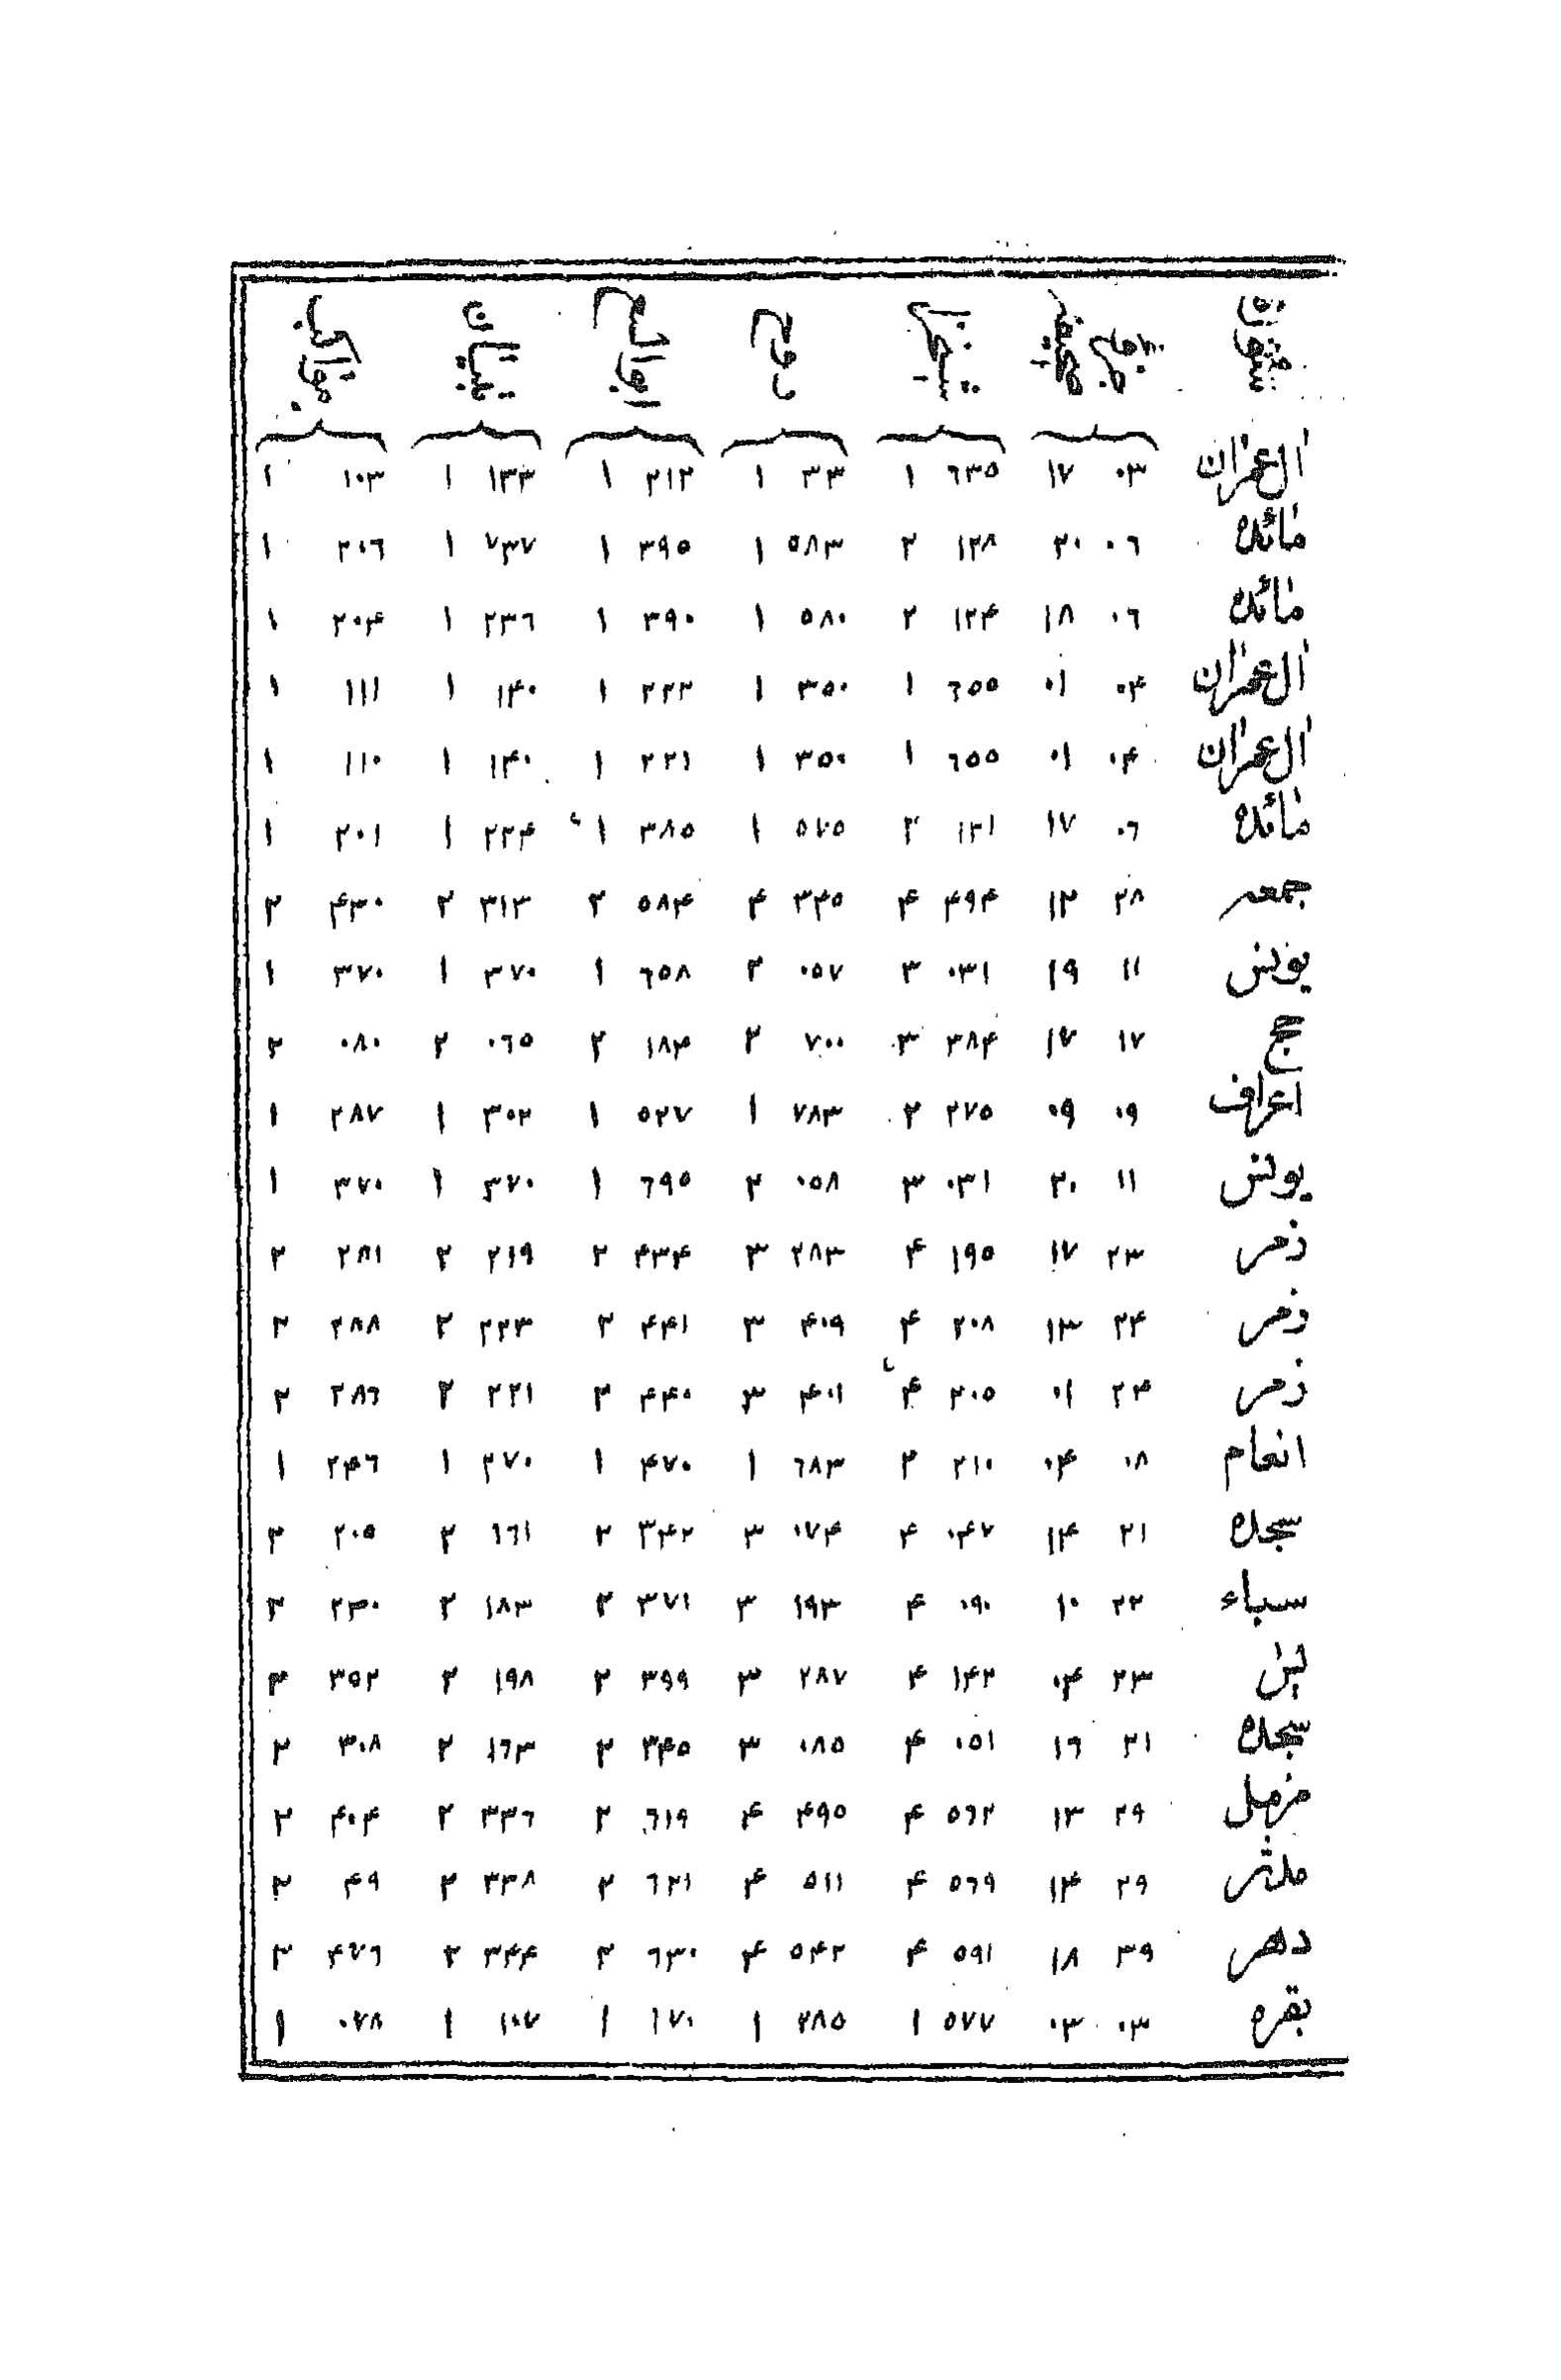 ال عمران ۰۳ ۱۷ ٦۳۵ ۱ ۳۳ ۱ ۲۱۲ ۱ ۱۳۳ ۱ ۱۰۳ ۱
مائده ۰٦ ۲۰ ۱۲۸ ۲ ۵۸۳ ۱ ۳۹۵ ۱ ۷۳۷ ۱ ۲۰٦ ۱
مائده ۰٦ ۱۸ ۱۲۴ ۲ ۵۸۰ ۱ ۳۹۰ ۱ ۲۳٦ ۱ ۲۰۴ ۱
ال عمران ۰۴ ۰۱ ٦۵۵ ۱ ۳۵۰ ۱ ۲۲۲ ۱ ۱۴۰ ۱ ۱۱۱ ۱
ال عمران ۰۴ ۰۱ ٦۵۵ ۱ ۳۵۰ ۱ ۲۲۱ ۱ ۱۴۰ ۱ ۱۱۰ ۱
مائده ۰٦ ۱۷ ۱۲۱ ۲ ۵۷۵ ۱ ۳۸۵ ۱ ۲۲۴ ۱ ۲۰۱ ۱
جمعه ۲۸ ۱۲ ۴۹۴ ۴ ۳۴۵ ۴ ۵۸۴ ۲ ۳۱۲ ۲ ۴۳۰ ۲
يونس ۱۱ ۱۹ ۰۳۱ ۳ ۰۵۷ ۲ ٦۵۸ ۱ ۳۷۰ ۱ ۳۷۰ ۱
حج ۱۷ ۱۷ ۳۸۴ ۳ ۷۰۰ ۲ ۱۸۴ ۲ ۰٦۵ ۲ ۰۸۰ ۲
اعراف ۰۹ ۰۹ ۲۷۵ ۲ ۷۸۳ ۱ ۵۲۷ ۱ ۳۰۲ ۱ ۲۸۷ ۱
يونس ۱۱ ۲۰ ۰۳۱ ۳ ۰۵۸ ۲ ٦۹۵ ۱ ۳۷۰ ۱ ۳۷۰ ۱
زمر ۲۳ ۱۷ ۱۹۵ ۴ ۲۸۳ ۳ ۴۳۴ ۲ ۲۱۹ ۲ ۲۸۱ ۲
زمر ۲۴ ۱۳ ۲۰۸ ۴ ۴۰۹ ۳ ۴۴۱ ۲ ۲۲۳ ۲ ۲۸۸ ۲
زمر ۲۴ ۰۱ ۲۰۵ ۴ ۴۰۱ ۳ ۴۴۰ ۲ ۲۲۱ ۲ ۲۸٦ ۲
انعام ۰۸ ۰۴ ۲۱۰ ۲ ٦۸۳ ۱ ۴۷۰ ۱ ۲۷۰ ۱ ۲۴٦ ۱
سجده ۲۱ ۱۴ ۰۴۷ ۴ ۰۷۴ ۳ ۳۴۲ ۲ ۱٦۱ ۲ ۲۰۵ ۲
سباء ۲۲ ۱۰ ۰۹۰ ۴ ۱۹۳ ۳ ۳۷۱ ۲ ۱۸۳ ۲ ۲۳۰ ۲
يس ۲۳ ۰۴ ۱۴۲ ۴ ۲۸۷ ۳ ۳۹۹ ۲ ۱۹۸ ۲ ۳۵۲ ۲
سجده ۲۱ ۱٦ ۰۵۱ ۴ ۰۸۵ ۳ ۳۴۵ ۲ ۱٦۳ ۲ ۳۰۸ ۲
مزمل ۲۹ ۱۳ ۵٦۲ ۴ ۴۹۵ ۴ ٦۱۹ ۲ ۳۳٦ ۲ ۴۰۴ ۲
مدثر ۲۹ ۱۴ ۵٦۹ ۴ ۵۱۱ ۴ ٦۲۱ ۲ ۳۳۸ ۲ ۴۹ ۲
دهر ۳۹ ۱۸ ۵۹۱ ۴ ۵۴۲ ۴ ٦۳۰ ۲ ۳۴۴ ۲ ۴۷٦ ۲
بقره ۰۳ ۰۳ ۵۷۷ ۱ ۲۸۵ ۱ ۱۷۰ ۱ ۱۰۷ ۱ ۰۷۸ ۱